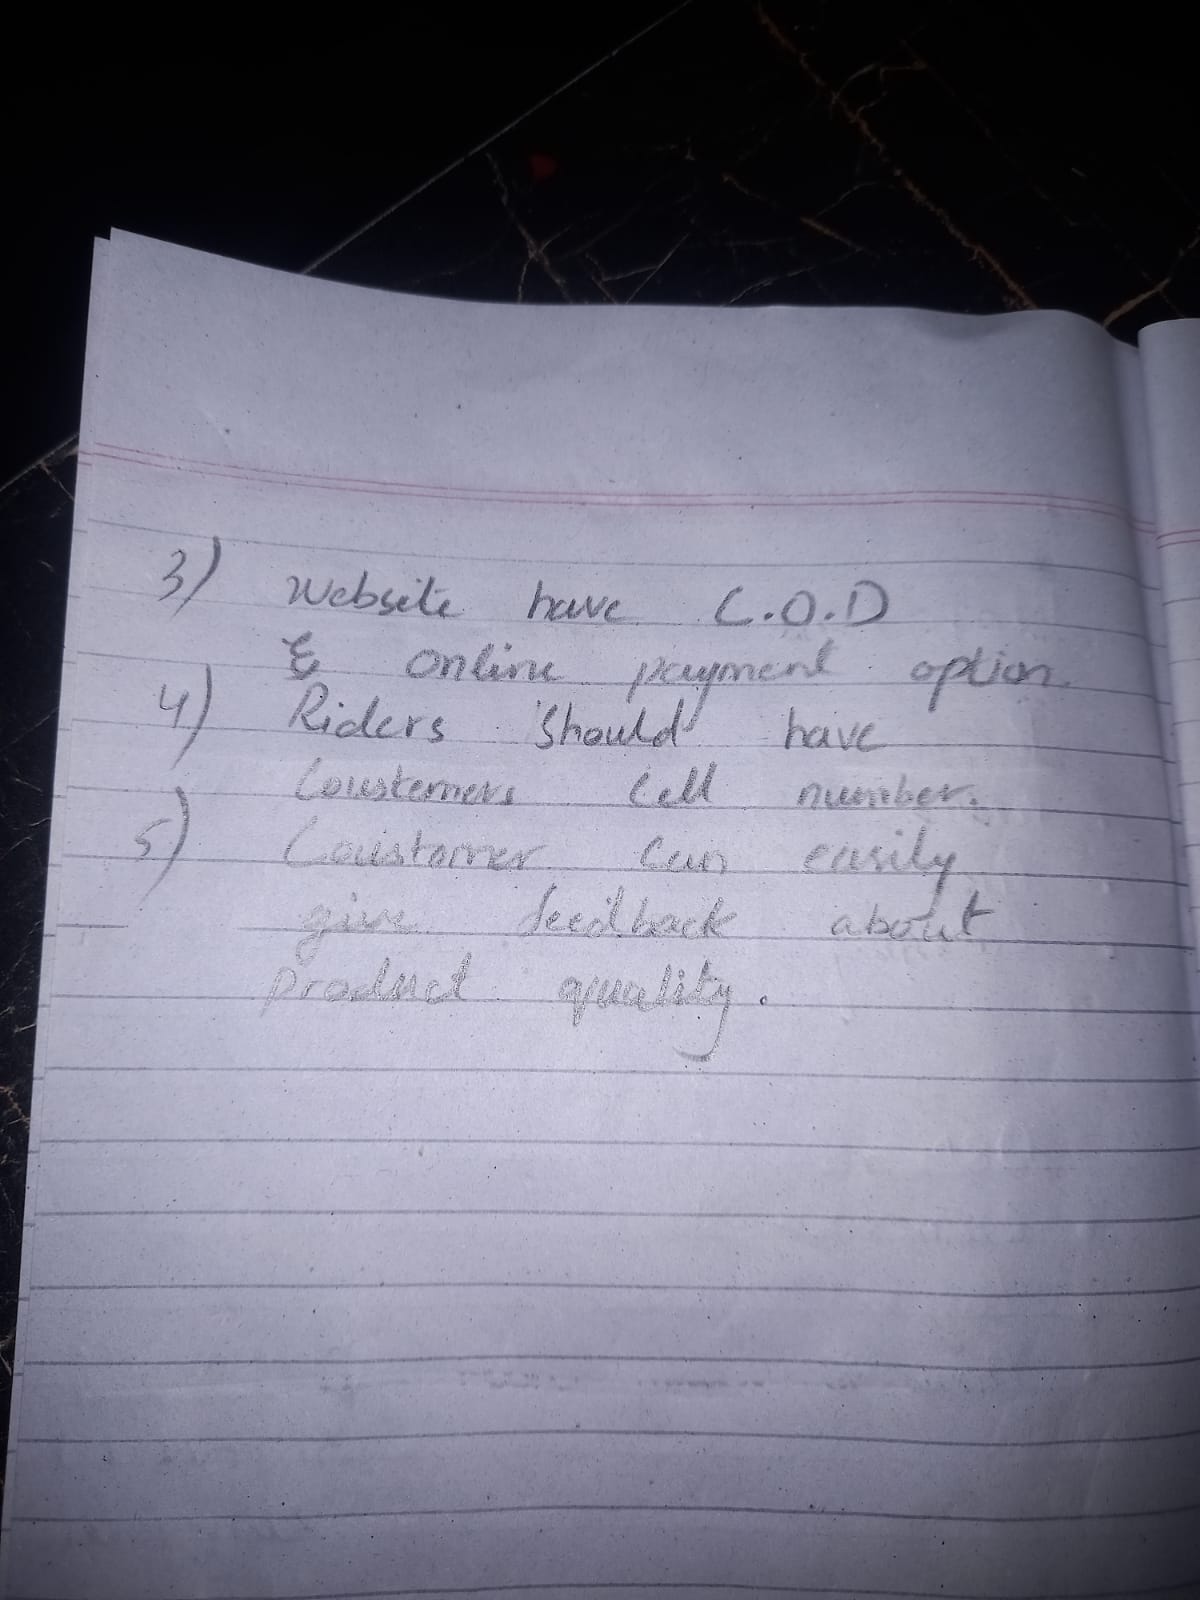 3) Website have C.O.D
& online payment option.
4) Riders Should have
Coustemers Cell number.
5) Coustomer Can easily
give feedback about
Product quality.